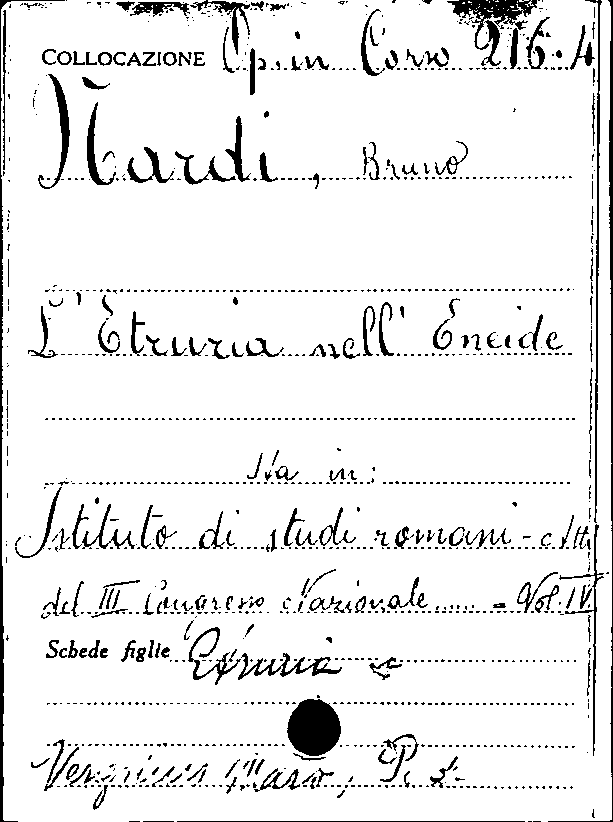 COLLOCAZIONE Op. in Corso 216.4
Nardi, Bruno
L'Etruria nell'Eneide
Sta in:
Istituto di studi romani - Atti
del III Congresso Nazionale..... - Vol. IV
Schede figlie Etruria
Vergilius Maro, P.